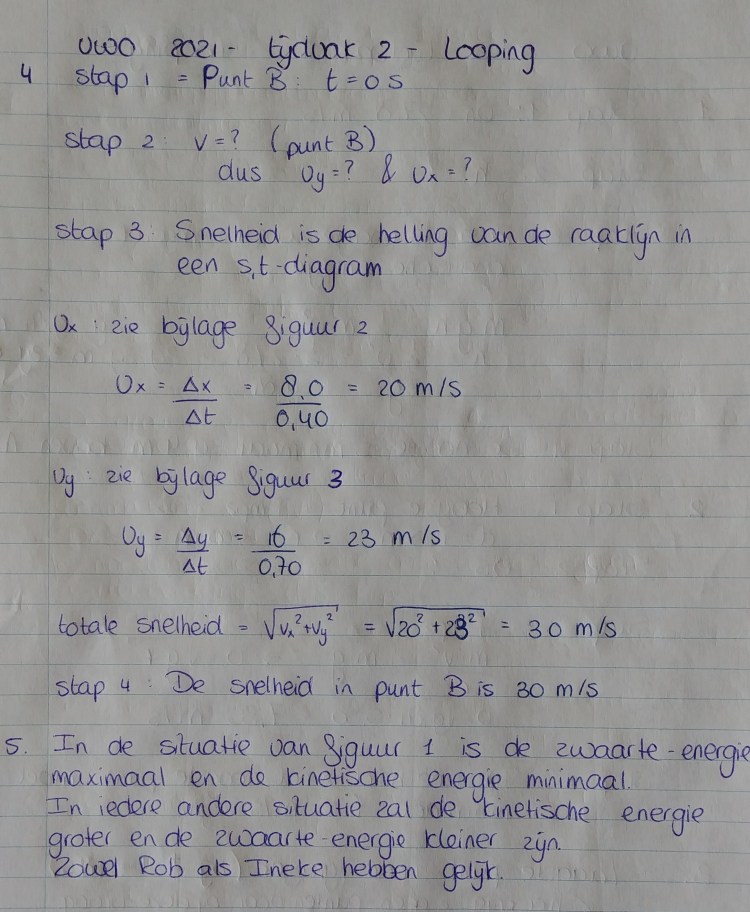 VWO 2021 - tijdvak 2 - Looping
4 stap 1 = Punt B: t = 0 s
stap 2: v = ? (punt B)
dus vy = ? & vx = ?
stap 3: Snelheid is de helling van de raaklijn in
een s,t-diagram
vx: zie bijlage figuur 2
vx = Δx/Δt = 8,0/0,40 = 20 m/s
vy: zie bijlage figuur 3
vy = Δy/Δt = 16/0,70 = 23 m/s
totale snelheid = √(vx² + vy²) = √(20² + 23²) = 30 m/s
stap 4: De snelheid in punt B is 30 m/s
5. In de situatie van figuur 1 is de zwaarte-energie
maximaal en de kinetische energie minimaal.
In iedere andere situatie zal de kinetische energie
groter en de zwaarte-energie kleiner zijn.
Zowel Rob als Ineke hebben gelijk.